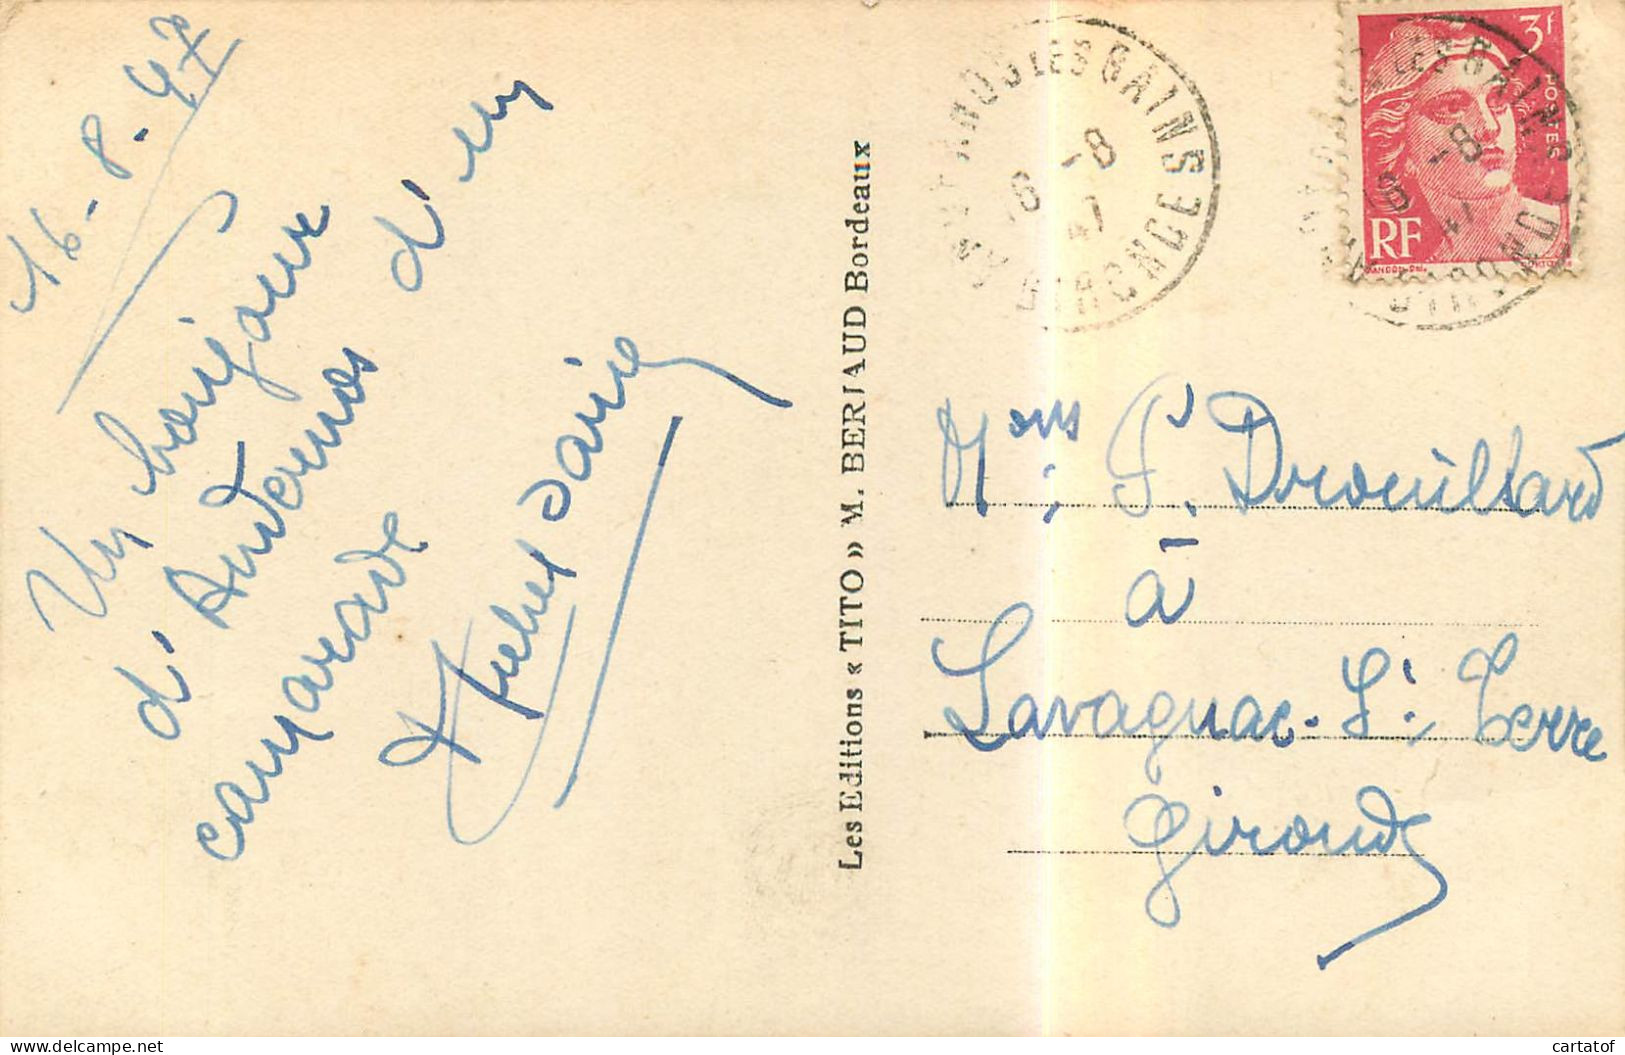 16-8-47
Un bonjour
d'Andernos d'un
camarade
Michel
Les Editions « TITO » M. BERJAUD Bordeaux
LES BAINS
16 -8
47
GIRONDE
3f
POSTES
RF
LES BAINS
-8
47
Mons F. Drouillard
à
Lavagnac-St Terre
Gironde
delcampe.net
cartatof